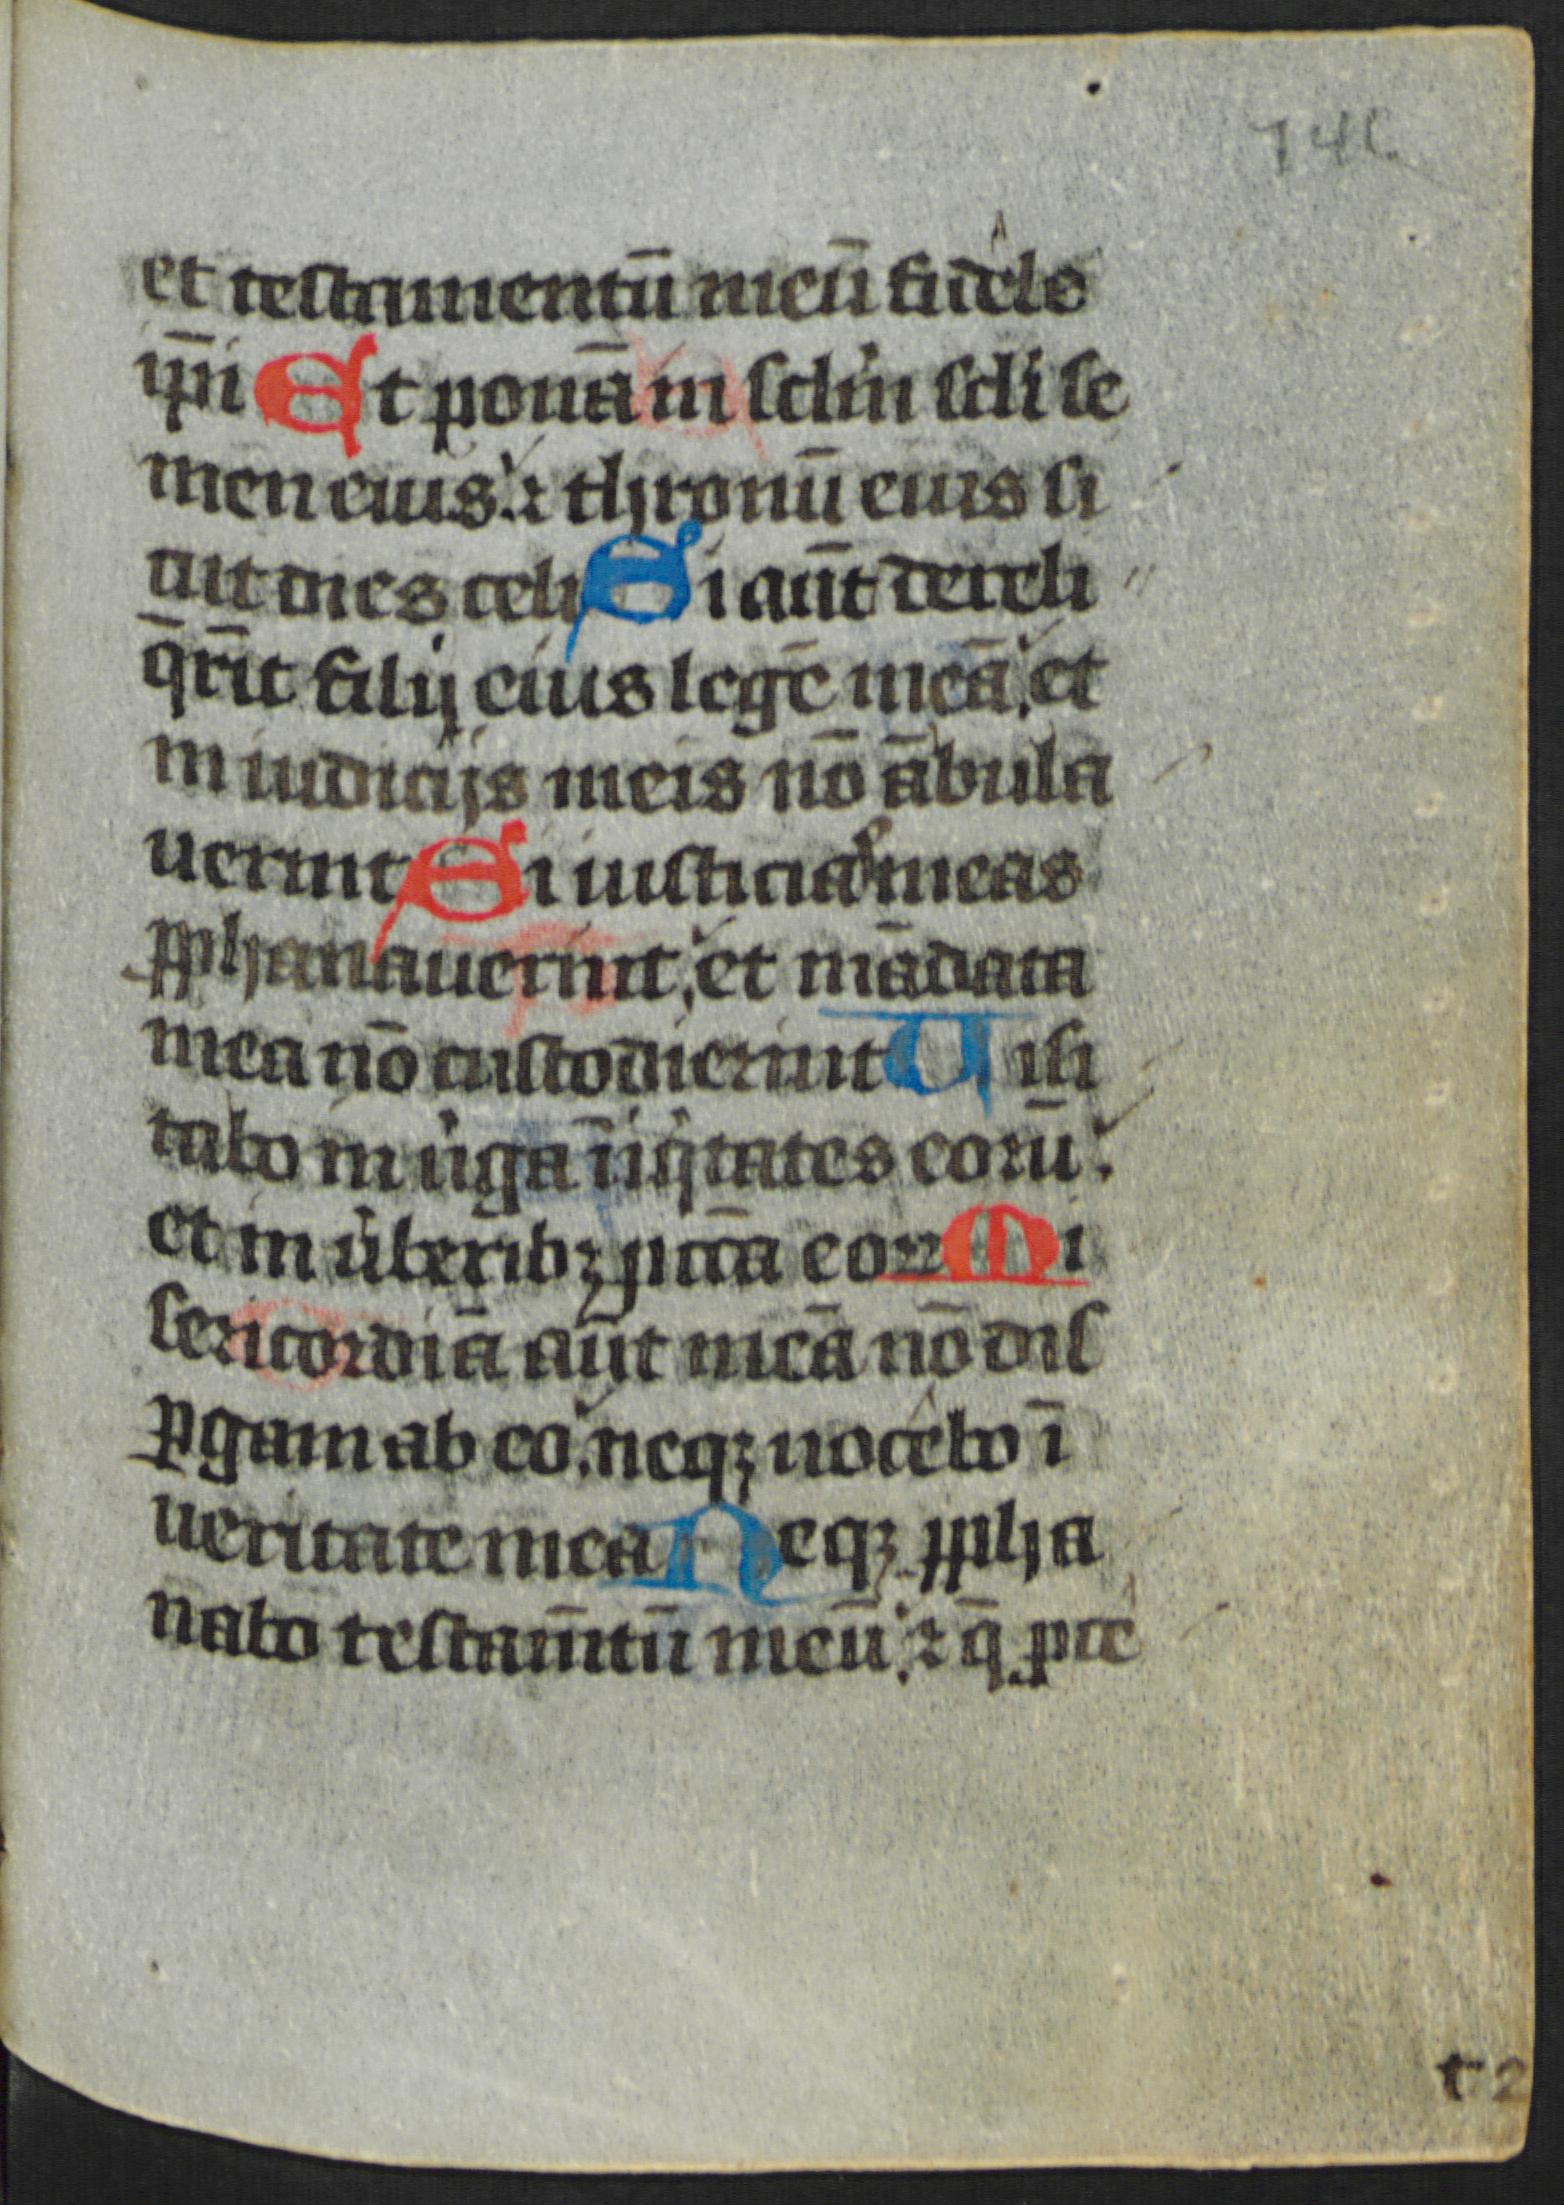 146
et testamentū meū fidele
ip̄i Et ponā in sclm̄ scli se
men eius: ⁊ thronū eius si
cut dies celi Si aūt dereli
q̄rīt filij eius legē meā: et
in iudicijs meis nō ābula
uerint Si iusticias meas
ꝓphanauerint: et mādata
mea nō custodierint Uisi
tabo in uͥga īiqͥtates eorū:
et in uͥberibꝫ pcc̄a eoꝝ Mi
sericordiā aūt meā nō dis
ꝑgam ab eo: neqꝫ nocebo ī
ueritate mea Neqꝫ ꝓpha
nabo testam̄tū meū: ⁊ q̄ ꝓce
t 2